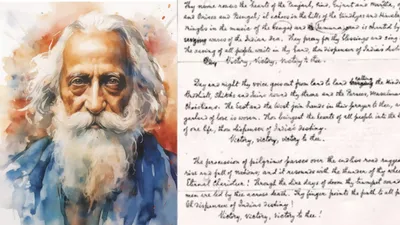 Thy name rouses the hearts of the Punjab, Sind, Gujrat and Maratha, of
and Orissa and Bengal; it echoes in the hills of the Vindhyas and Himalayas
mingles in the music of the Ganges and Jumuna and is chanted by
waves of the Indian Sea. They pray for thy blessings and sing
The saving of all people waits in thy hand, thou dispenser of India's destiny
Victory, Victory, Victory to thee.
Day and night thy voice goes out from land to land calling the Hindus
Buddhists, Sikhs and Jains round thy throne and the Parsees, Mussalmans
Christians. The East and the West join hands in their prayer to thee, and
garland of love is woven. Thou bringest the hearts of all people into the
of one life, thou dispenser of India's destiny.
Victory, Victory, Victory to thee.
The procession of pilgrims passes over the endless road rugged
rise and fall of nations; and it resounds with the thunder of thy wheels
Eternal Charioteer! Through the dire days of doom thy trumpet sounds
men are led by thee across death. Thy finger points the path to all
Oh dispenser of India's destiny!
Victory, victory, victory to thee!